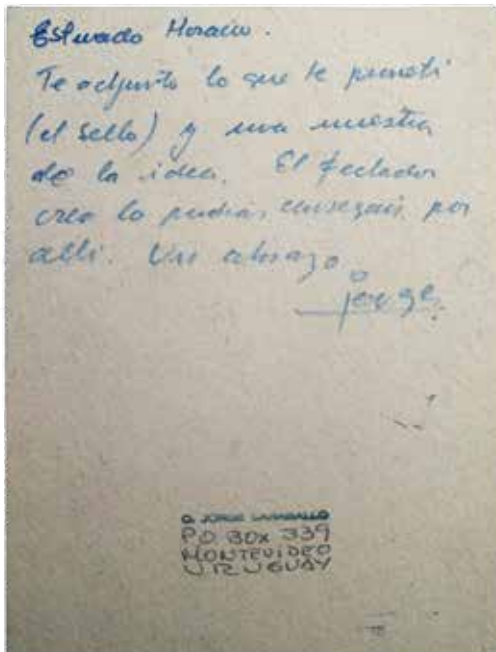 Estimado Horacio.
Te adjunto lo que te prometí
(el sello) y una muestra
de la idea. El fechador
creo lo podrás conseguir por
allí. Un abrazo
jorge
O JORGE CARABALLO
PO BOX 339
MONTEVIDEO
URUGUAY